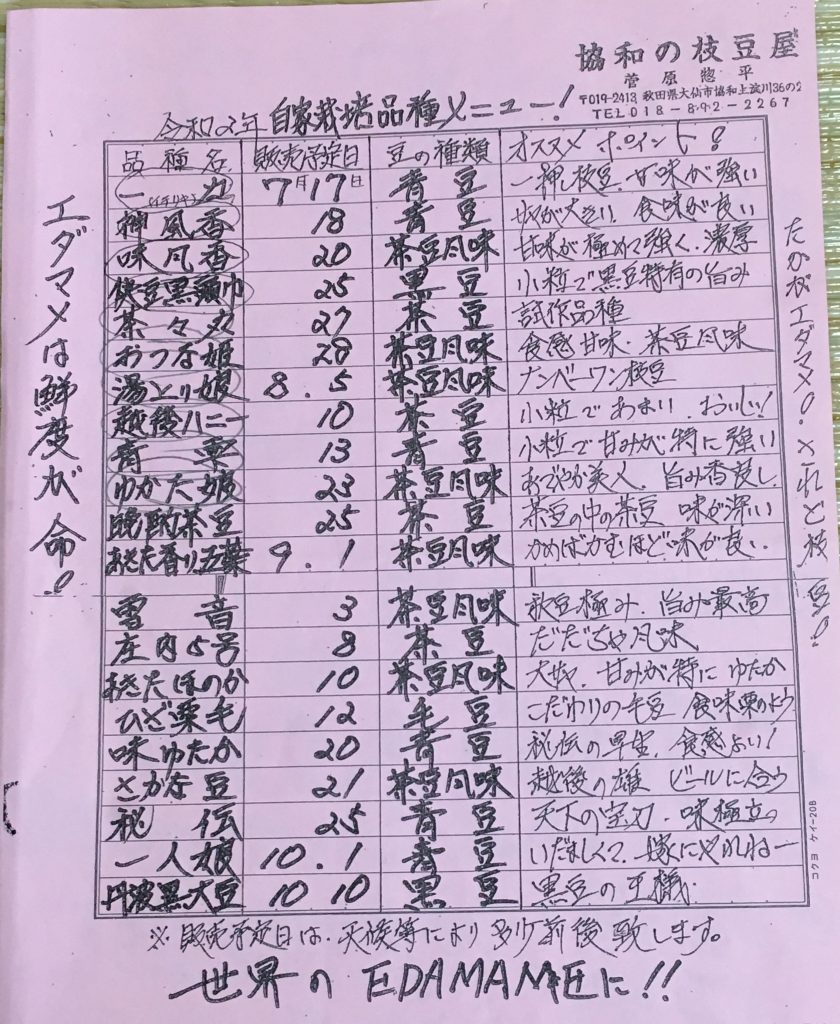 協和の枝豆屋
菅原惣平
〒019-2413 秋田県大仙市協和上淀川36の2
TEL 018-892-2267
令和2年 自家栽培品種メニュー!
品種名 販売予定日 豆の種類 オススメ ポイント!
一力 (イチリキ) 7月17日 青豆 一押し枝豆、甘味が強い
神風香 18 青豆 サヤが大きい 食味が良い
味風香 20 茶豆風味 甘味が極めて強く、濃厚
快豆黒頭巾 25 黒豆 小粒で黒豆特有の旨み
茶々丸 27 茶豆 試作品種
おつな姫 28 茶豆風味 食感 甘味・茶豆風味
湯上り娘 8.5 茶豆風味 ナンバーワン枝豆
越後ハニー 10 茶豆 小粒であまい、おいしい!
青雫 13 青豆 小粒で甘みが特に強い
ゆかた娘 23 茶豆風味 あでやか美人、旨み香良し
晩酌茶豆 25 茶豆 茶豆の中の茶豆 味が深い
あきた香り五葉 9.1 茶豆風味 かめばかむほど味が良い
雪音 3 茶豆風味 秋豆極み、旨み最高
庄内5号 8 茶豆 だだちゃ風味
あきたほのか 10 茶豆風味 大サヤ、甘みが特にゆたか
ひざ栗毛 12 毛豆 こだわりの毛豆 食味栗のよう
味ゆたか 20 青豆 秘伝の早生、食感よい!
さかな豆 21 茶豆風味 越後の雄 ビールに合う
秘伝 25 青豆 天下の宝刀・味極立つ
一人娘 10.1 青豆 いだましくて、嫁にやれねー
丹波黒大豆 10 10 黒豆 黒豆の王様
※販売予定日は、天候等により多少前後致します。
世界のEDAMAMEに!!
エダマメは鮮度が命!
たかがエダマメ!されど枝豆!
コクヨ ケイ-20B